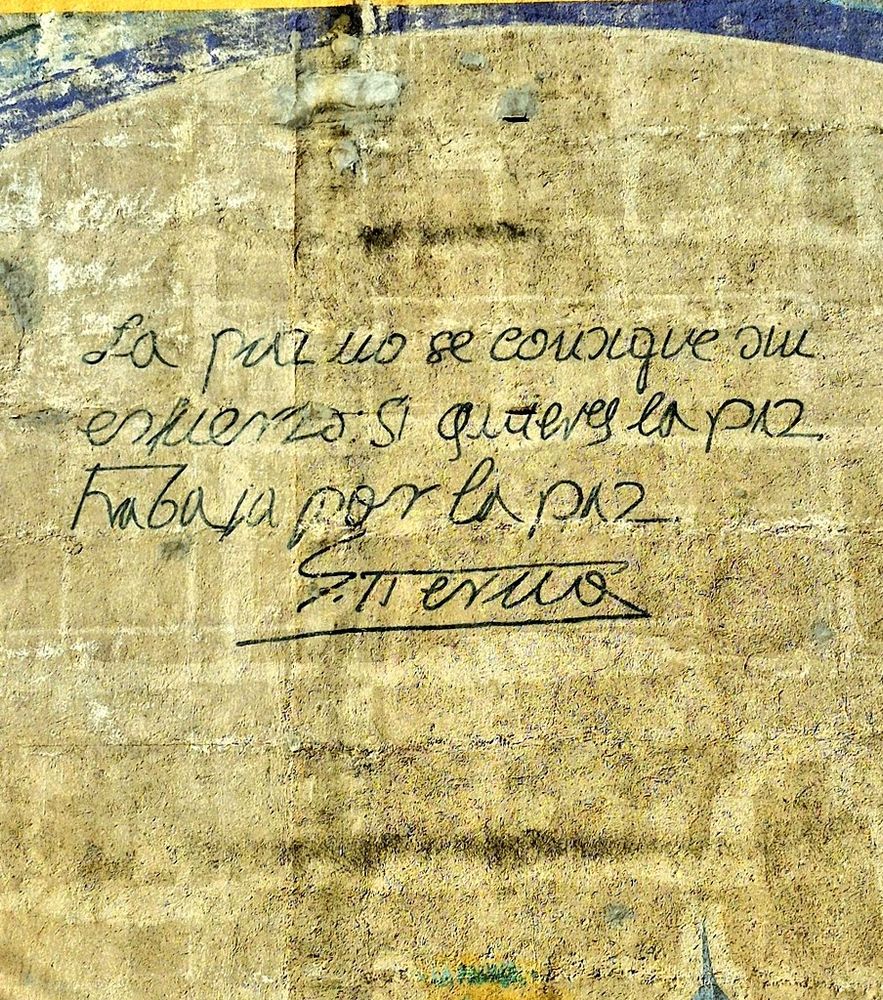 La paz no se consigue sin
esfuerzo. Si quieres la paz
trabaja por la paz.